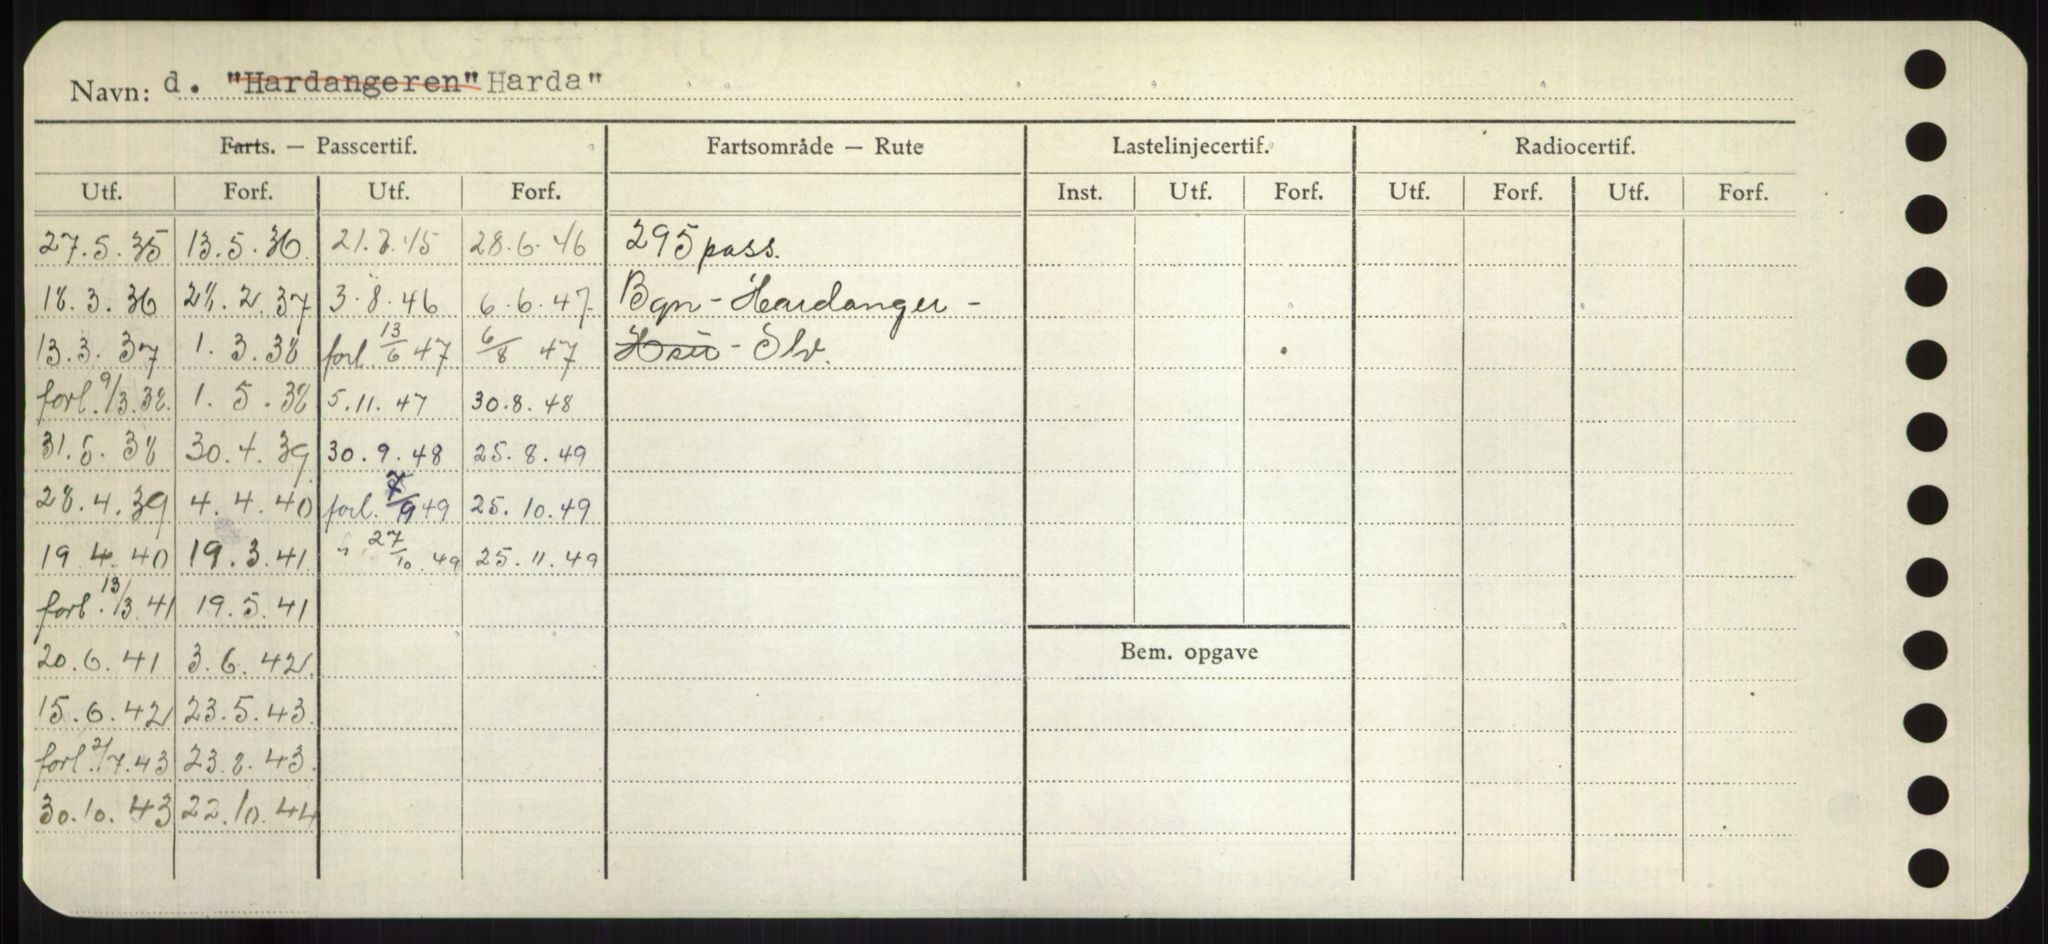 Navn: d. "Hardangeren" Harda"
Farts. — Passcertif. Fartsområde — Rute Lastelinjecertif. Radiocertif.
Utf. Forf. Utf. Forf. Inst. Utf. Forf. Utf. Forf. Utf. Forf.
27.5.35 13.5.36 28.6.46 295 pass.
18.3.36 3.8.46 6.6.47 Bgn - Hardanger -
13.3.37 1.3.38 forl. 13/6 47 6/8 47 - Ølv.
forl. 9/3.38. 1.5.38 5.11.47 30.8.48
31.5.38 30.4.39 30.9.48 25.8.49
28.4.39 4.4.40 forl. 7/9 49 25.10.49
19.4.40 19.3.41 " 27/10.49 25.11.49
forl. 13/3 41 19.5.41
20.6.41 3.6.42. Bem. opgave
15.6.42 23.5.43.
forl. 21/7.43 23.8.43.
30.10.43 22.10.44